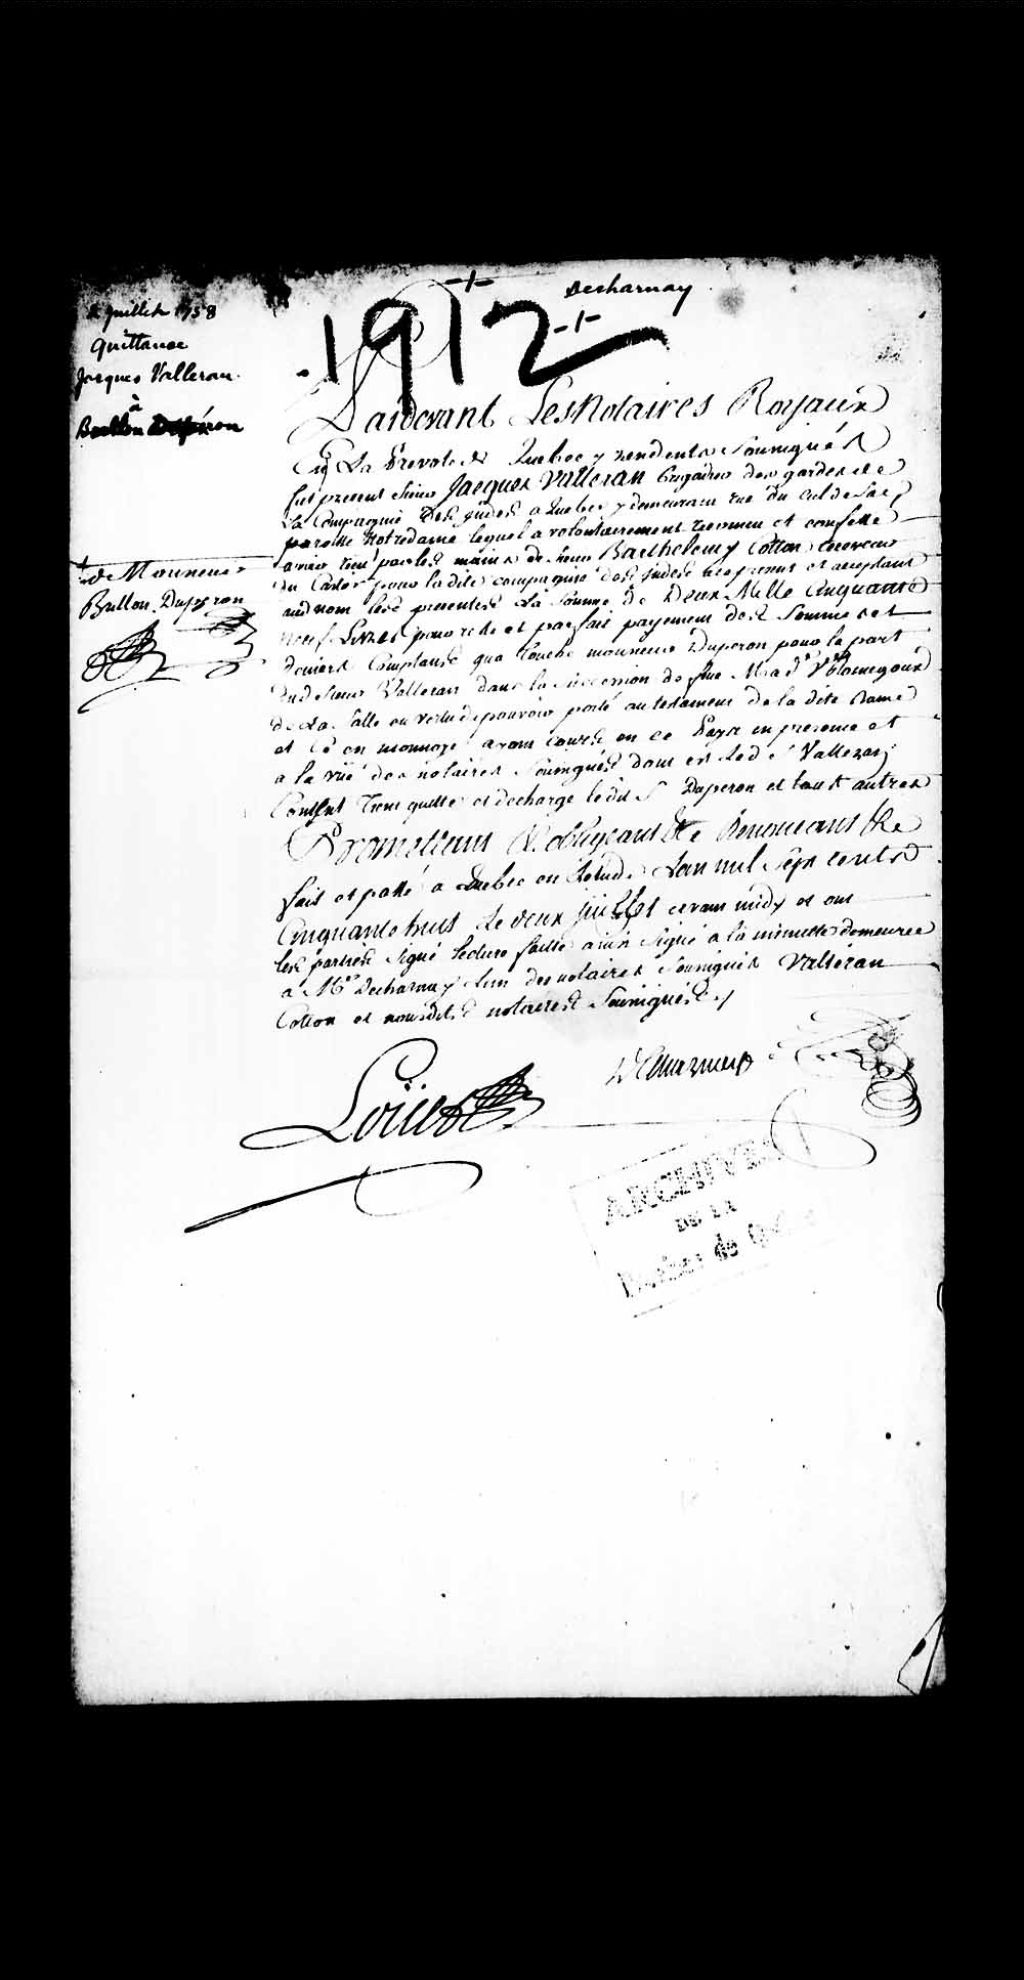 Decharnay
1912
2 Juillet 1758
Quittance
Jacques Valleran
à
Baillon Duperon
Pardevant Les Notaires Royaux
En La Prevoté de Quebec y residents Soussignés
fut present Sieur Jacques Valleran Brigadier des gardes de
La Compagnie des Indes a Quebec y demeurant rue du cul de sac
paroisse Notredame lequel a volontairement reconnu et confessé
avoir reçu par les mains de Sieur Barthelemy Cotton receveur
du Castor pour ladite compagnie des Indes a ce present et acceptant
aud nom les presentes La Somme de Deux Mille Cinquante
neuf Livres pour reste et parfait payement des Sommes et
deniers Comptans qua touché monsieur Duperon pour la part
dud Sieur Valleran dans la succession de feue
de La Salle en vertu de pouvoir porté au testament de la dite Dame
et Ce en monnoye ayant cours en ce Pays en presence et
a la vüe des notaires Soussignés dont led Sr Valleran
Content Tient quitte et decharge ledit Sr Duperon et tous autres
Promettant &c obligeant &c Renonceant &c
fait et passé a Quebec en Etude Lan mil Sept cents
Cinquante huit Le deux juillet avant midy et ont
les parties signé lecture faitte ainsi Signé a la minutte demeurée
a Me Decharnay Lun des notaires Soussignés Valleran
Cotton et nousdits notaires Soussignés
+ de Monsieur
Baillon Duperon
Decharnay
ARCHIVES
DE LA
de